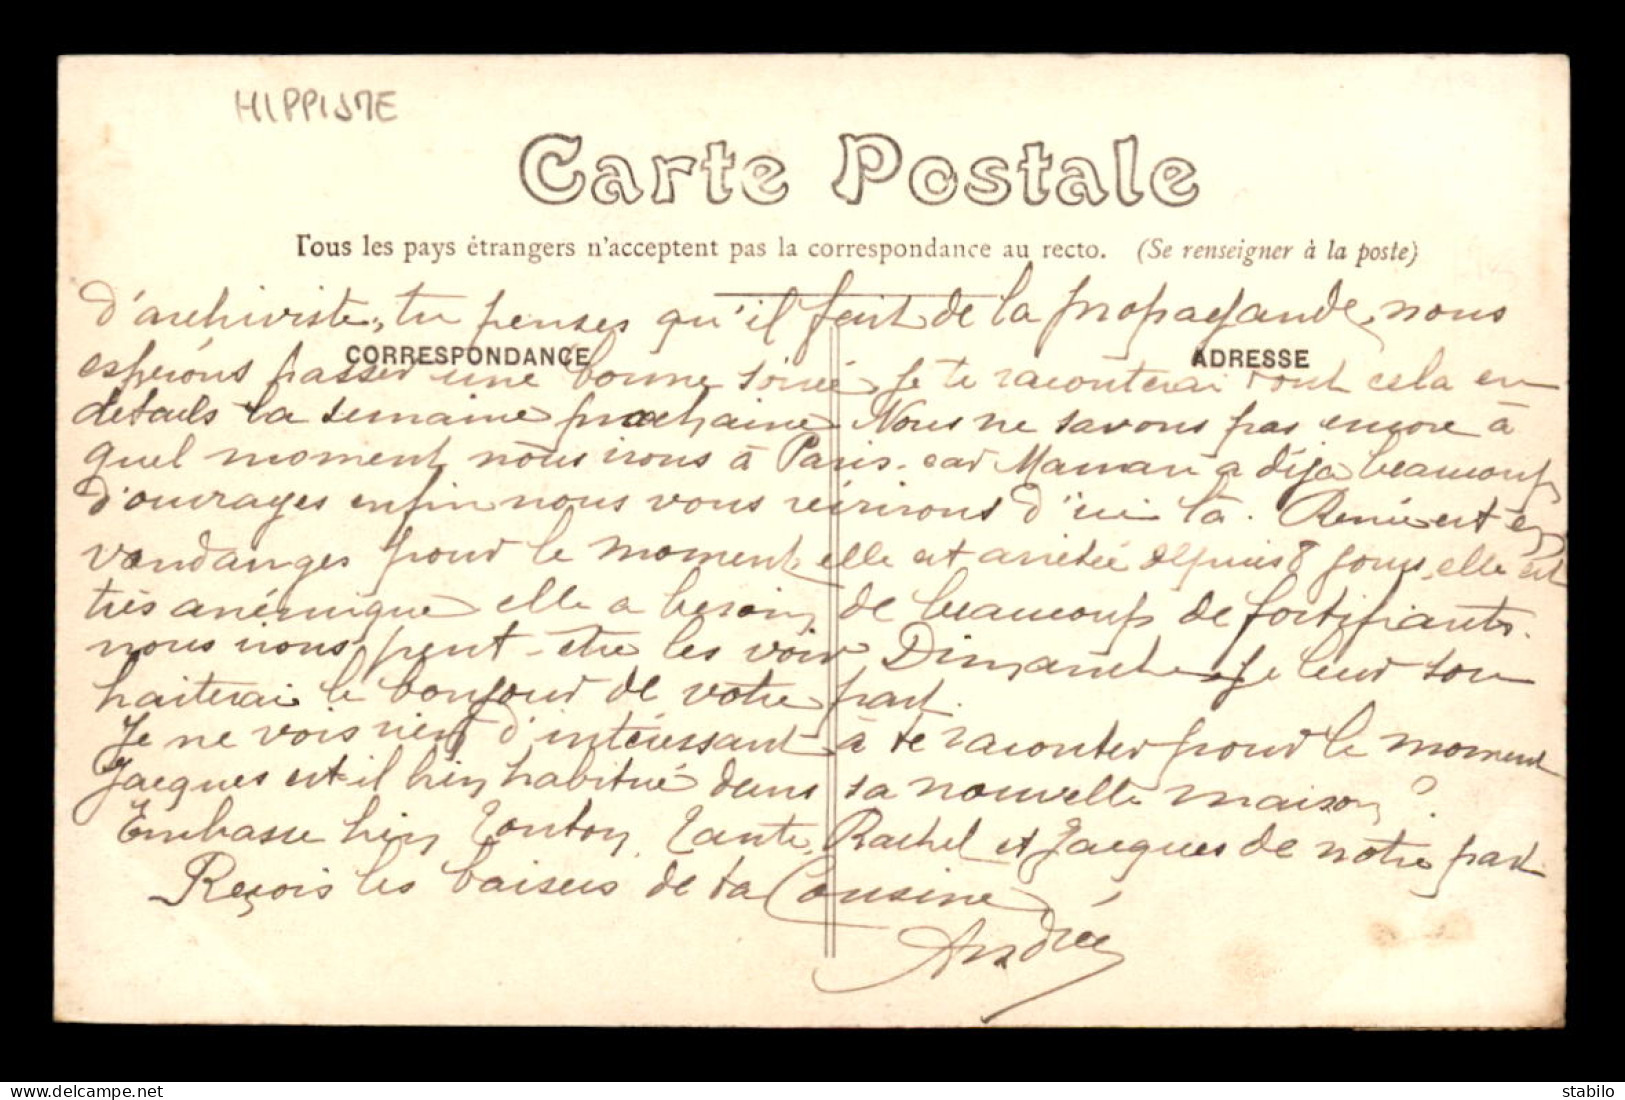 HIPPISME
Carte Postale
Tous les pays étrangers n'acceptent pas la correspondance au recto. (Se renseigner à la poste)
d'archiviste, tu penses qu'il fait de la propagande, nous
CORRESPONDANCE
ADRESSE
espérons passer une bonne soirée, je te raconterai tout cela en
détails la semaine prochaine. Nous ne savons pas encore à
quel moment nous irons à Paris. car Maman a déja beaucoup
d'ouvrages enfin nous vous récrirons d'ici là. Renée est en
vendanges pour le moment, elle est arrêtée depuis 8 jours, elle est
très anémique elle a besoin de beaucoup de fortifiants.
nous irons peut-être les voir Dimanche, je leur sou
haiterai le bonjour de votre part.
Je ne vois rien d'intéressant à te raconter pour le moment
Jacques est-il bien habitué dans sa nouvelle maison ?
Embrasse bien Tonton, Tante, Rachel et Jacques de notre part.
Reçois les baisers de ta Cousine
Andrée
www.delcampe.net
stabilo